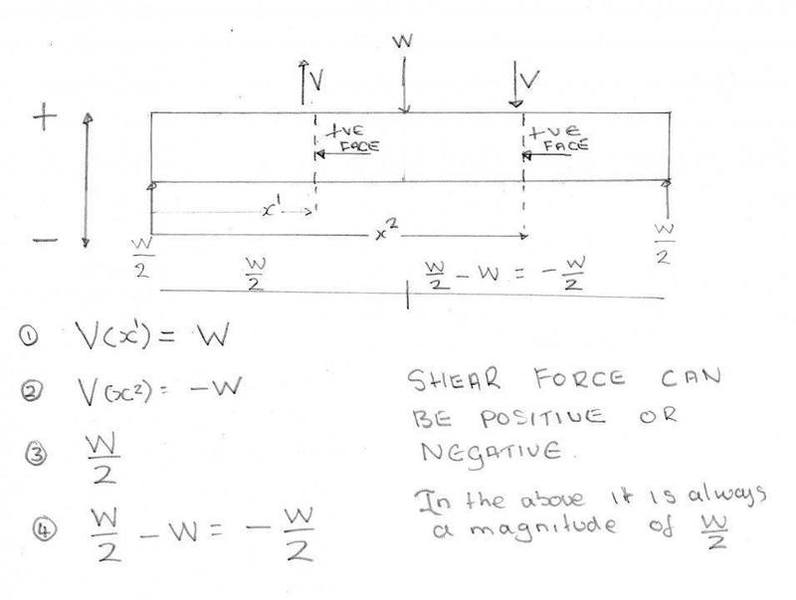 W
V V
+
+VE
FACE
+VE
FACE
x¹
x²
−
W/2
W/2
W/2
W/2 − W = −W/2
① V(x¹) = W
② V(x²) = −W
③ W/2
④ W/2 − W = −W/2
SHEAR FORCE CAN
BE POSITIVE OR
NEGATIVE.
In the above it is always
a magnitude of W/2